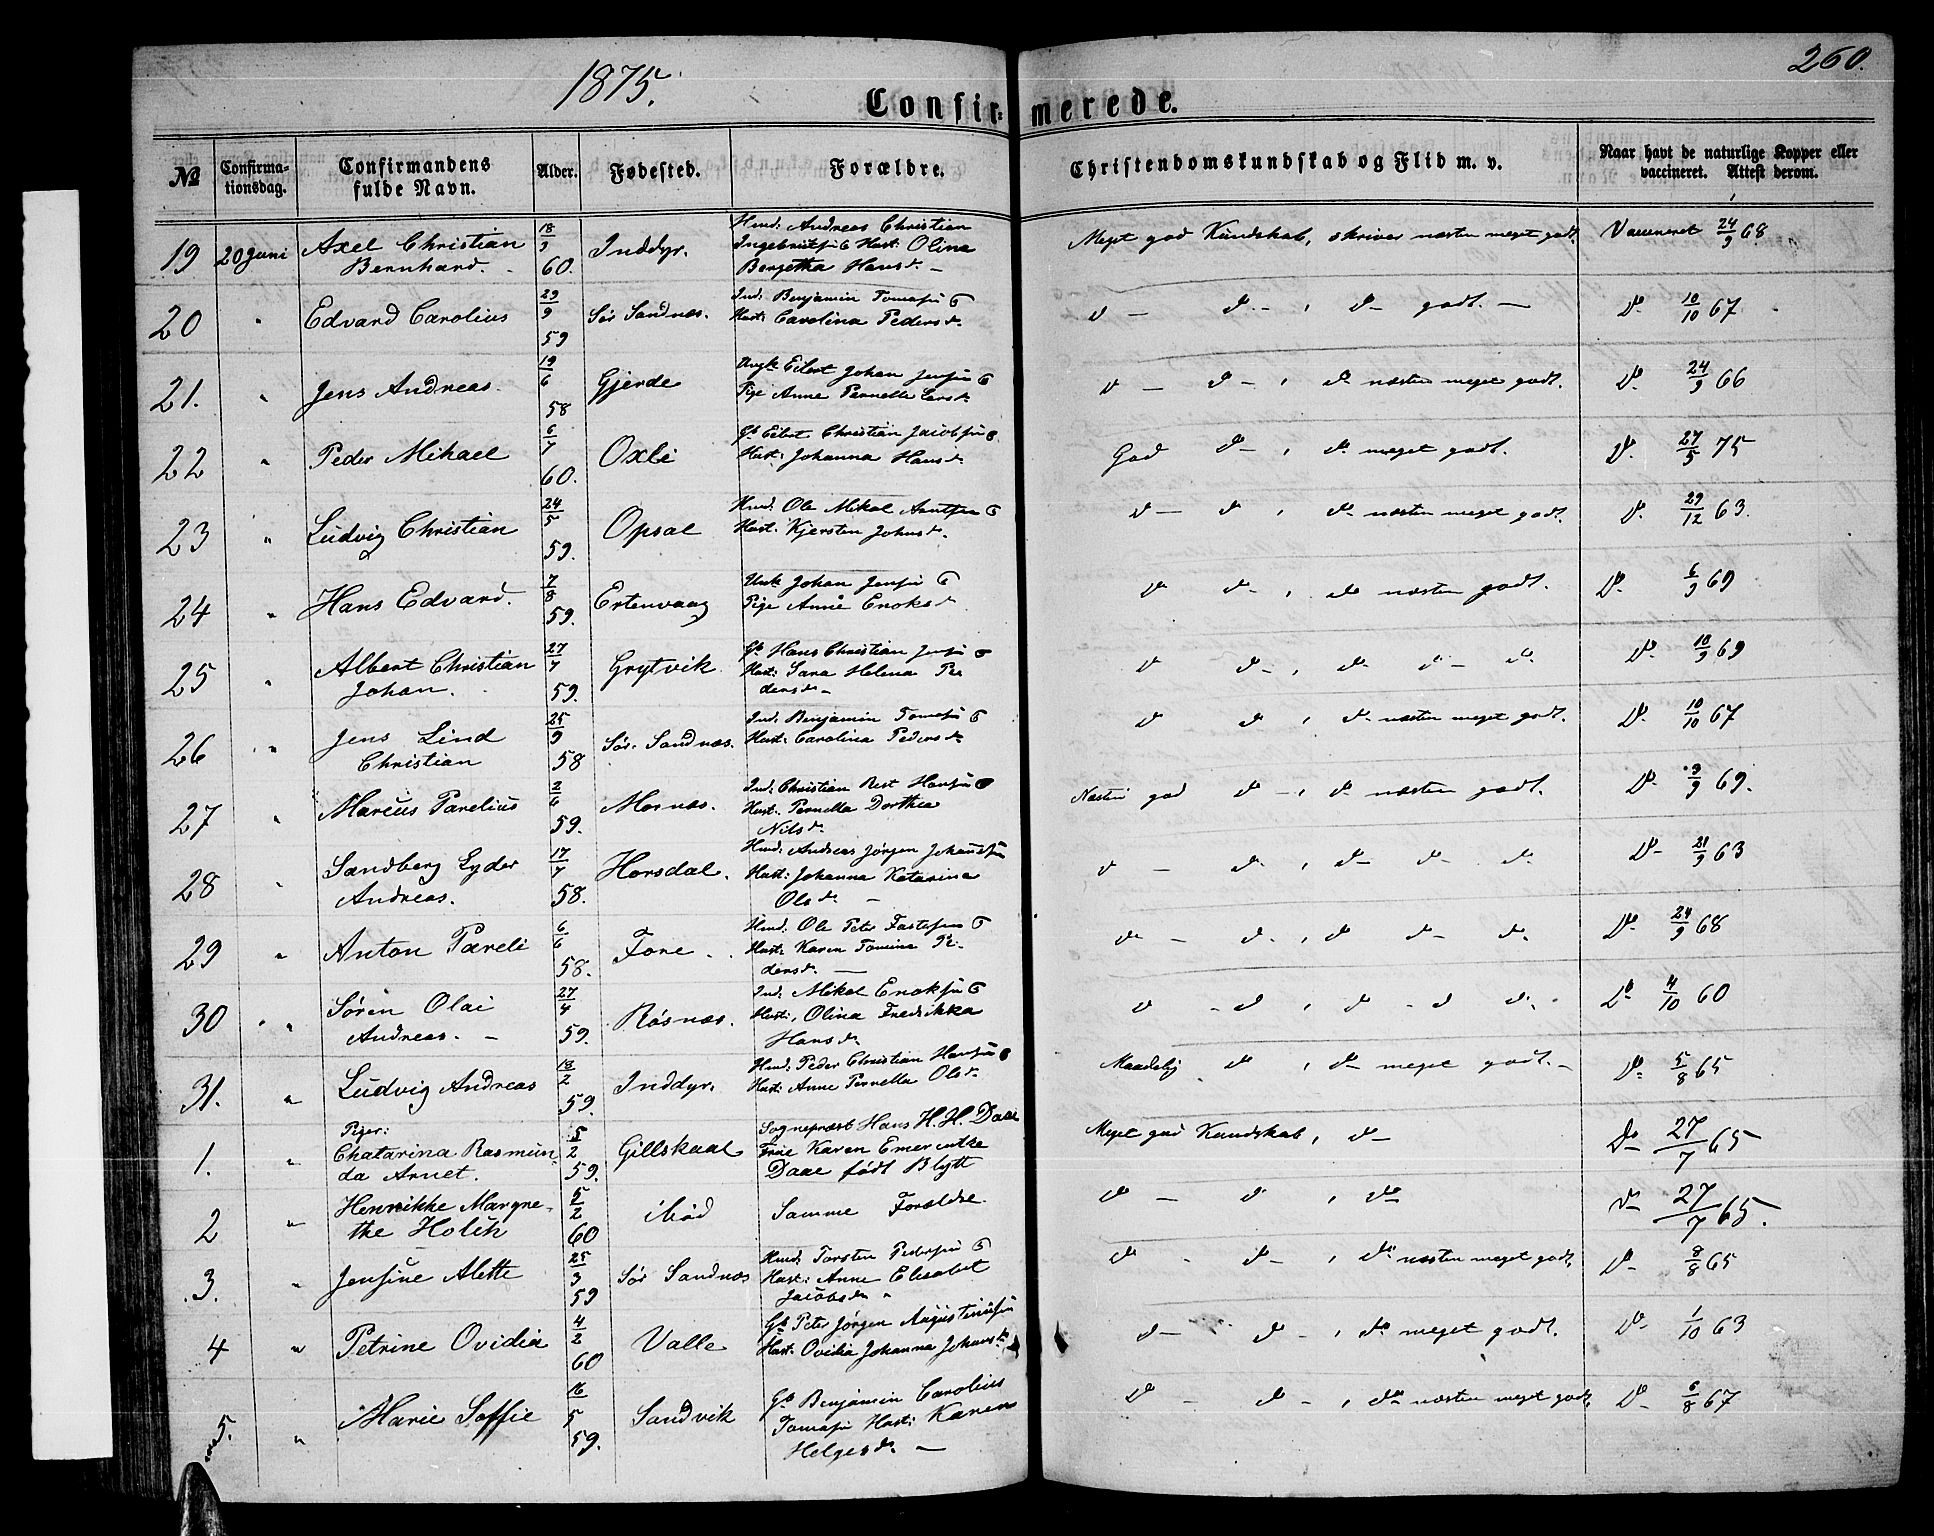 1875.
260.
Confirmerede.
№ Confirmationsdag. Confirmandens fulde Navn. Alder. Fødested. Forældre. Christendomskundskab og Flid m. v. Naar havt de naturlige Kopper eller vaccineret. Attest derom.
19 20 Juni Axel Christian 18/3 Inddyr. Hmd: Andreas Christian Meget god Kundskab, skriver næsten meget godt. Vaccineret 24/9 68
Bernhard. 60. Hust: Olina
Bergetha Hansd.
20 " Edvard Carolius 29/9 59 Sør Sandnæs. Ind: Benjamin Tomass
Hust: Carolina Pedersd. d - d - , d - godt. - D. 10/10 67
21. " Jens Andreas. 19/6 58 Gjerde Eilert Johan Jens
Pige Anne Pernelle d - d - , d næsten meget godt. D. 24/9 66
22 " Peder Mikael 6/7 60. Oxli Eilert Christian Jacobs
Hust: Johanna Hansd. God d - , d meget godt. D. 27/5 75
23 " Ludvig Christian 24/5 59. Opsal Hmd: Ole Mikal
Hust: Kjersten Johnsd. d - d , d næsten meget godt. D. 29/12 63.
24 " Hans Edvard. 7/8 59. Ertenvaag Johan Jens
Pige Anne Enoksd. d d - , d næsten godt. D. 6/9 69
25 " Albert Christian 27/7 Grytvik Hans Christian Jens
Johan. 59. Hust: Sara Helena Pe
dersd. - d d - , d d - d D. 10/9 69
26 " Jens Lind 25/9 Sør. Sandnæs. Ind: Benjamin Tomass
Christian 58 Hust: Carolina Pedersd. d d , d næsten meget godt. D. 10/10 67
27 " Marcus Parelius 2/6 59. Mosnæs. Ind: Christian Hans
Hust: Pernella Dorthea
Nilsd. Næsten god d - , d næsten godt. D. 9/9 69.
28 " Sandberg Lyder 17/7 Horsdal. Hmd: Andreas Jørgen
Andreas. 58. Hust: Johanna Katarina
Olsd. - d - d , d - d - d D - 21/9 63
29 " Anton Pareli 6/6 58. Fore Hmd: Ole Peter
Hust: Karen Tomine Pe-
dersd. d - d , d d - d D. 24/9 68
30 " Søren Olai 27/4 Røsnæs. Ind: Mikal Enoks
Andreas. - 59. Hust: Olina Fredrikka
Hansd. d - d , d - d d - D. 4/10 60
31. " Ludvig Andreas 13/2 59. Inddyr. Hmd: Peder Christian Hans
Hust: Anne Pernella Olsd. Maadelig d , d meget godt. - D. 5/8 65
Piger:
1. " Chatarina Rasmun 5/2 Gillskaal Sogneprest Hans H. H. Daae
da Arnet. 59. Frue Karen Emerentke
Daae født Blytt Meget god Kundskab, d - D - 27/7 65
2 " Henrikke Margre- 5/2 ibid Samme Forældre d - d , d D - 27/7 65.
the Holck 60
3. " Jensine Alette 25/3 59 Sør Sandnæs Hmd: Torsten Peders
Hust: Anne Elisabet
Jacobsd. d - d - , d næsten meget godt. D - 8/8 65
4 " Petrine Ovidia 4/2 60 Valle Peter Jørgen Augustinus
Hust: Ovidia Johanna Johansd. d - d - , d meget godt. D. 1/10 63
5. " Marie Soffie 16/5 59. Sandvik Benjamin Carolius
Tomass Hust: Karen
Helgesd. - d - d - , d næsten meget godt. D - 6/8 67